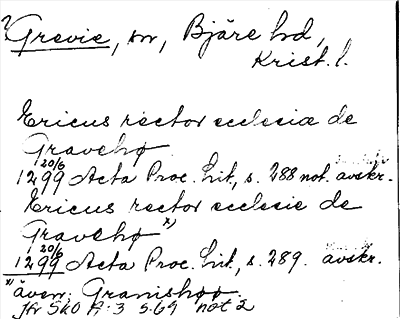 ? Grevie, sn, Bjäre hd,
Krist. l.
Ericus rector ecclesiæ de
Gravehø
20/6
1299 Acta Proc. Lit., s. 288 not. avskr.
Ericus rector ecclesie de
Gravehø x)
20/6
1299 Acta Proc. Lit., s. 289. avskr.
x) även: Granishøø
Jfr SkO A:3 s. 69 not 2